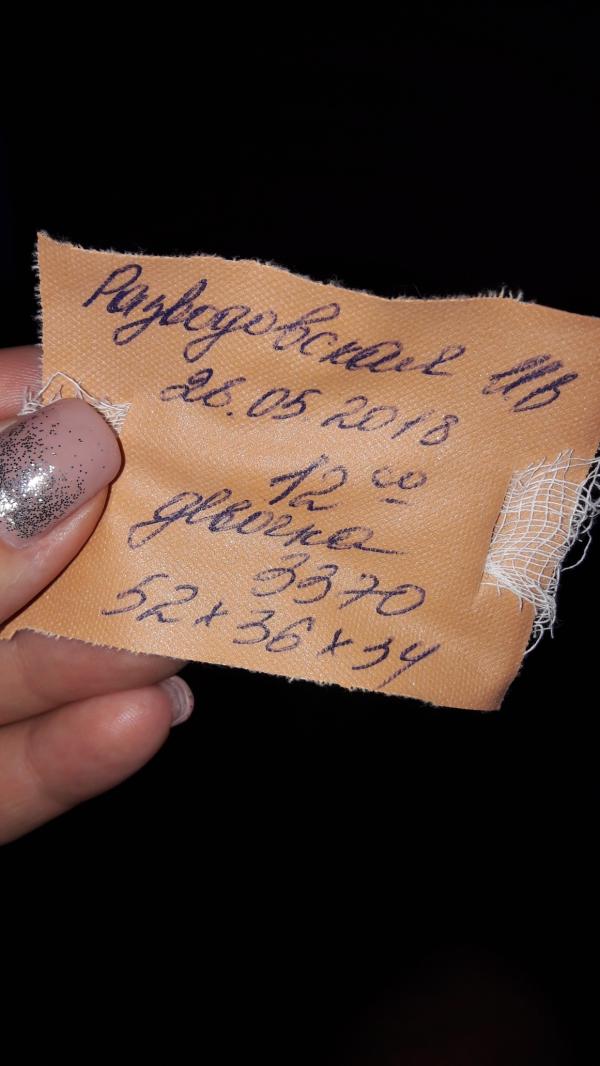 Разводовская ИВ
26.05.2018
12 00
девочка
3370
52 x 36 x 34